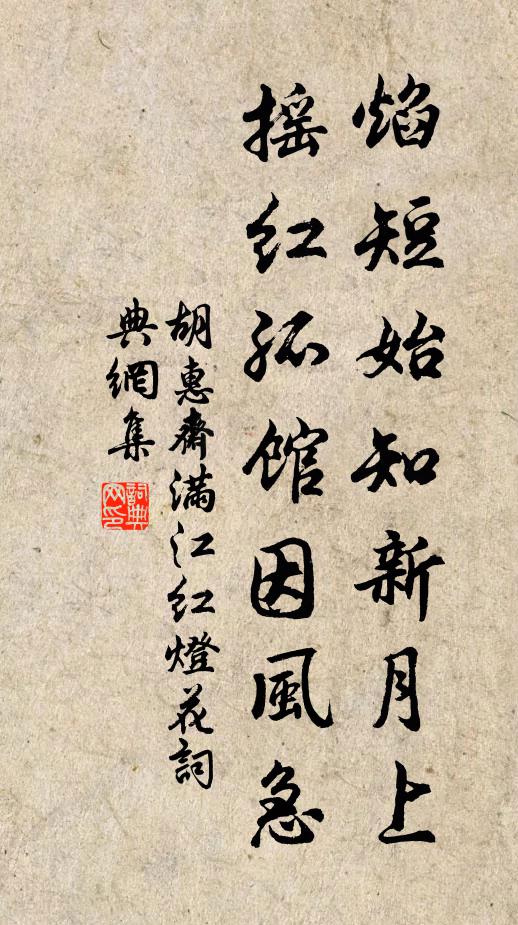 焰短始知新月上
摇红孤馆因風急
胡惠齋滿江红燈花詞
典網集
詞典
网印